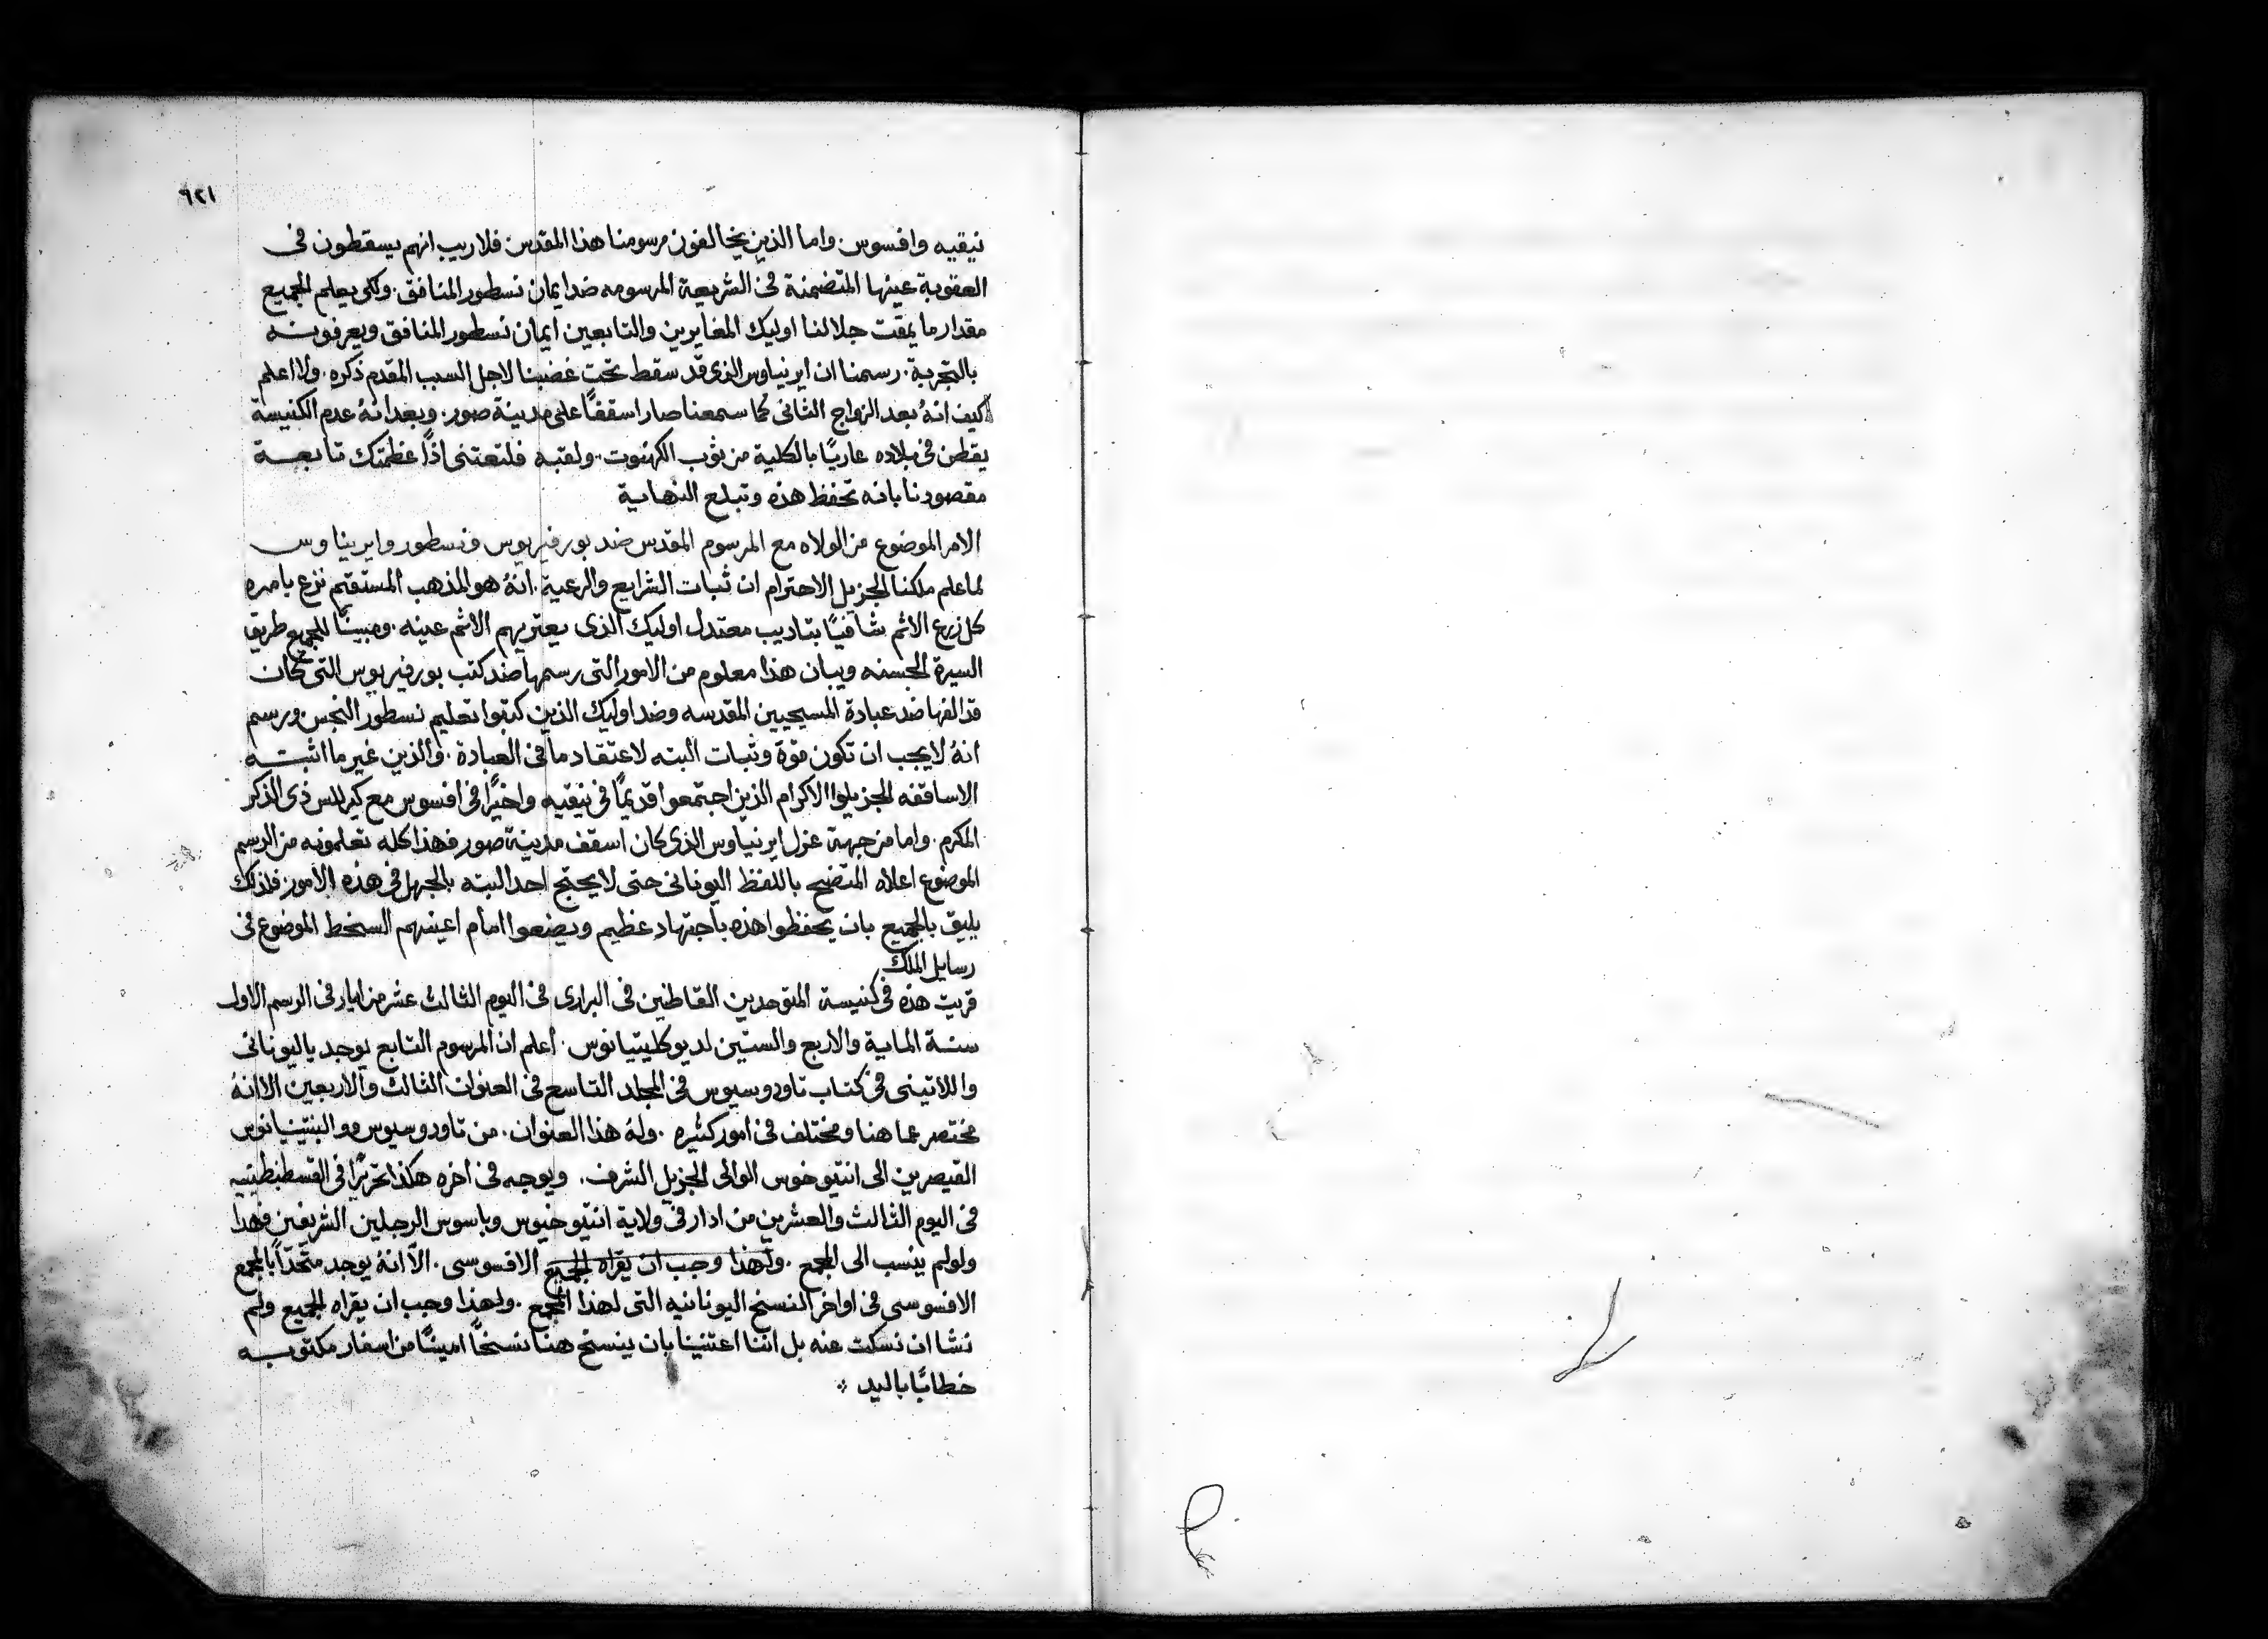 ٦٢١
نيقيه وافسوس. واما الذين يخالفون مرسومنا هذا المقدس فلا ريب انهم يسقطون فى
العقوبة عينها المتضمنة فى الشريعة المرسومه ضد ايمان نسطور المنافق. ولكى يعلم الجميع
مقدار ما يمقت جلالنا اوليك المغايرين والتابعين ايمان نسطور المنافق ويعرفونه
بالتجربة. رسمنا ان ايرنياوس الذى قد سقط تحت غضبنا لاجل السبب المقدم ذكره. ولا اعلم
كيف انهُ بعد الزواج الثانى كما سمعنا صار اسقفًا على مدينة صور. وبعد انهُ عدم الكنيسة
يقطن فى بلاده عاريًا بالكلية من ثوب الكهنوت ولقبه فلتعتنى اذًا عظمتك تابعة
مقصودنا بانه تحفظ هذه وتبلغ النهاية
الامر الموضوع من الولاه مع المرسوم المقدس ضد بورفيريوس ونسطور وايريناوس
لما علم ملكنا الجزيل الاحترام ان ثبات الشرايع والرعية. انهُ هو المذهب المستقيم نزع بامره
كل زرع الاثم شافيًا بتاديب معتدل اوليك الذى يعتريهم الاثم عينه. ومبينًا للجميع طريق
السيرة الحسنه وبيان هذا معلوم من الامور التى رسمها ضد كتب بورفيريوس التى كان
قد الفها ضد عبادة المسيحيين المقدسه وضد اوليك الذين كتبوا تعليم نسطور النجس ورسم
انهُ لا يجب ان تكون قوة وثبات البته لاعتقاد ما فى العبادة. والذين غير ما اثبته
الاساقفه الجزيلوا الاكرام الذين اجتمعوا قديمًا فى نيقيه واخيرًا فى افسوس مع كيرللس ذى الذكر
المكرم. واما من جهة عزل ايرنياوس الذى كان اسقف مدينة صور فهذا كله تعلمونه من الرسم
الموضوع اعلاه المتضح باللفظ اليونانى حتى لا يحتج احد البته بالجهل فى هذه الامور فلذلك
يليق بالجميع بان يحفظوا هذه باجتهاد عظيم ويضعوا امام اعينهم السخط الموضوع فى
رسايل الملك
قريت هذه فى كنيسة المتوحدين القاطنين فى البرارى فى اليوم الثالث عشر من ايار فى الرسم الاول
سنة الماية والاربع والستين لديوكليتيانوس. اعلم ان المرسوم التابع يوجد باليونانى
واللاتينى فى كتاب تاودوسيوس فى المجلد التاسع فى العنوان الثالث والاربعين الا انهُ
مختصر عما هنا ومختلف فى امور كثيره. ولهُ هذا العنوان. من تاودوسيوس ووالنتينيانوس
القيصرين الى انتيوخوس الوالى الجزيل الشرف. ويوجه فى اخره هكذا تحريرًا فى القسطنطينيه
فى اليوم الثالث والعشرين من ادار فى ولاية انتيوخيوس وباسوس الرجلين الشريفين وهذا
ولو لم ينسب الى المجمع. ولهذا وجب ان يقراه الجميع الافسوسى. الّا انهُ يوجد متحدًا بالمجمع
الافسوسى فى اواخر النسخ اليونانيه التى لهذا المجمع. ولهذا وجب ان يقراه الجميع ولم
نشا ان نسكت عنه بل اننا اعتنينا بان ينسخ هنا نسخًا امينًا من اسفار مكتوبه
خطابًا باليد